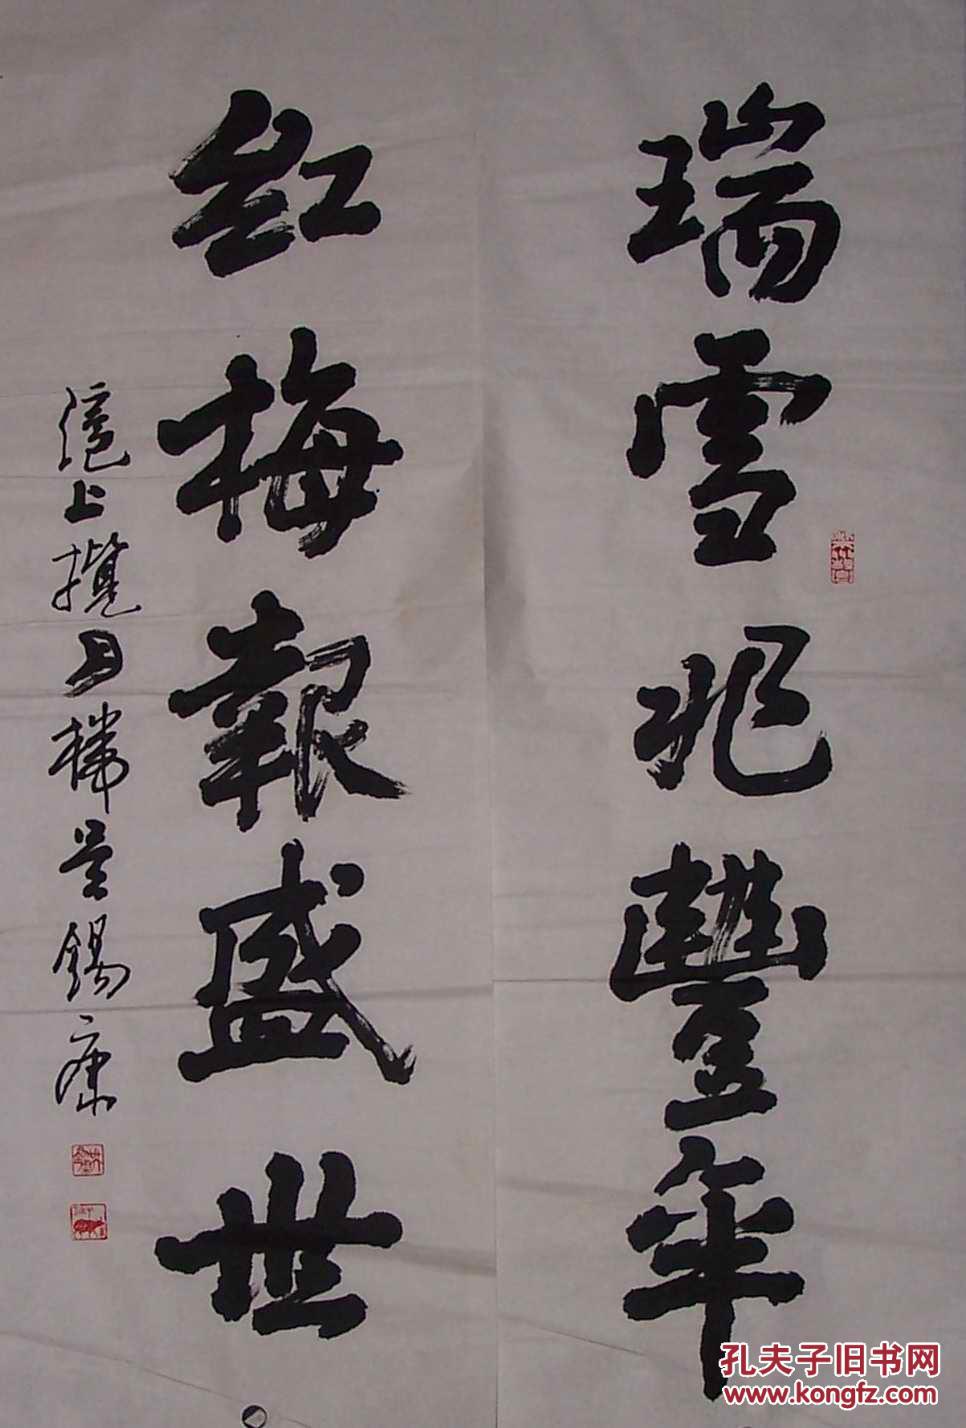 瑞雪兆豐年
紅梅報盛世
滬上攬月樓吳錫康
孔夫子旧书网
www.kongfz.com